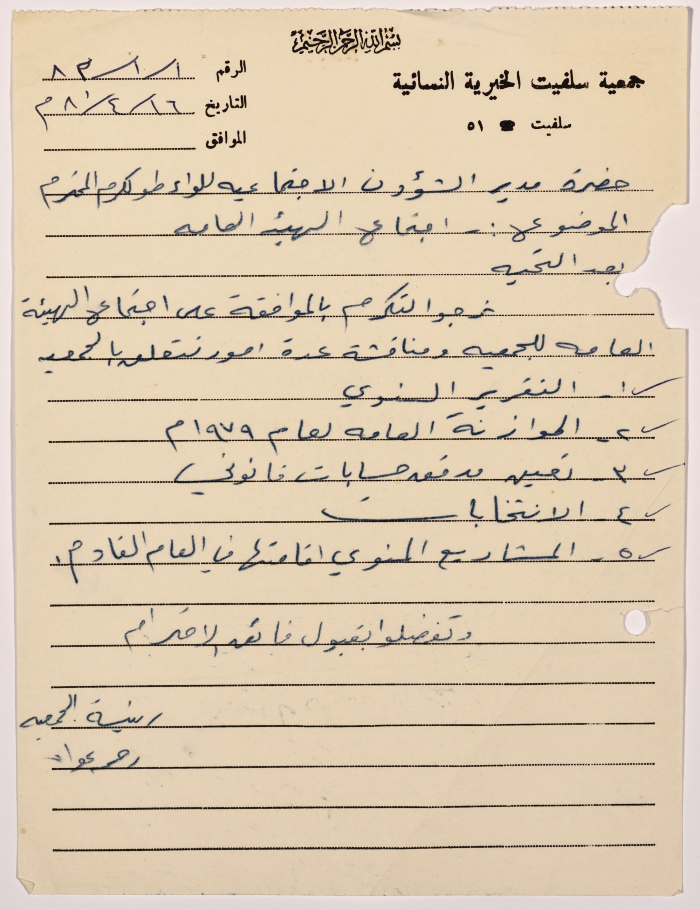 بسم الله الرحمن الرحيم
جمعية سلفيت الخيرية النسائية
سلفيت ☎ ٥١
الرقم
التاريخ ١٦/٤/٨٠م
الموافق
حضرة مدير الشؤون الاجتماعيه للواء طولكرم المحترم
الموضوع :- اجتماع الهيئه العامه
بعد التحيه
نرجو التكرم بالموافقة على اجتماع الهيئة
العامه للجمعيه ومناقشة عدة امور تتعلق بالجمعيه
١- التقرير السنوي
٢- الموازنة العامه لعام ١٩٧٩م
٣- تعيين مدقق حسابات قانوني
٤- الانتخابات
٥- المشاريع المنوي اقامتها في العام القادم.
وتفضلوا بقبول فائق الاحترام
رئيسة الجمعيه